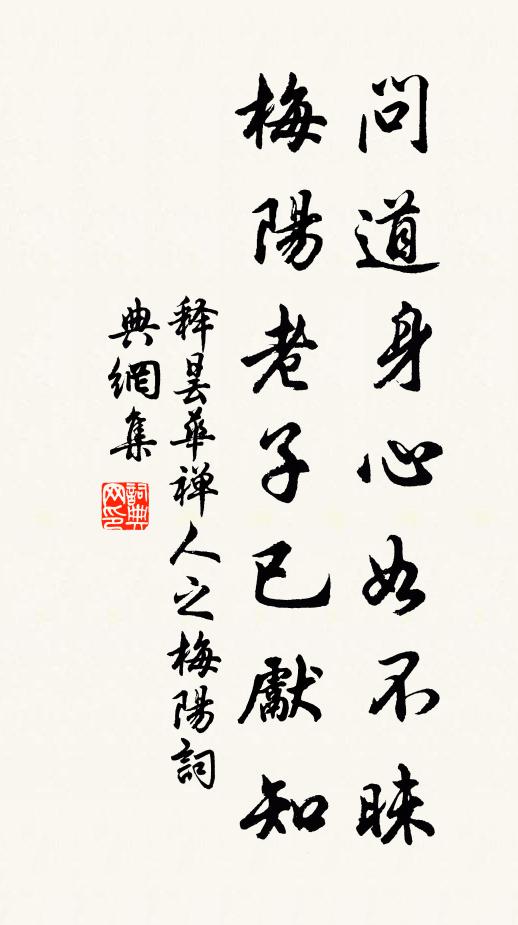 問道身心如不昧
梅陽老子已獻知
释曇華禅人之梅陽詞
典網集
詞典
网印